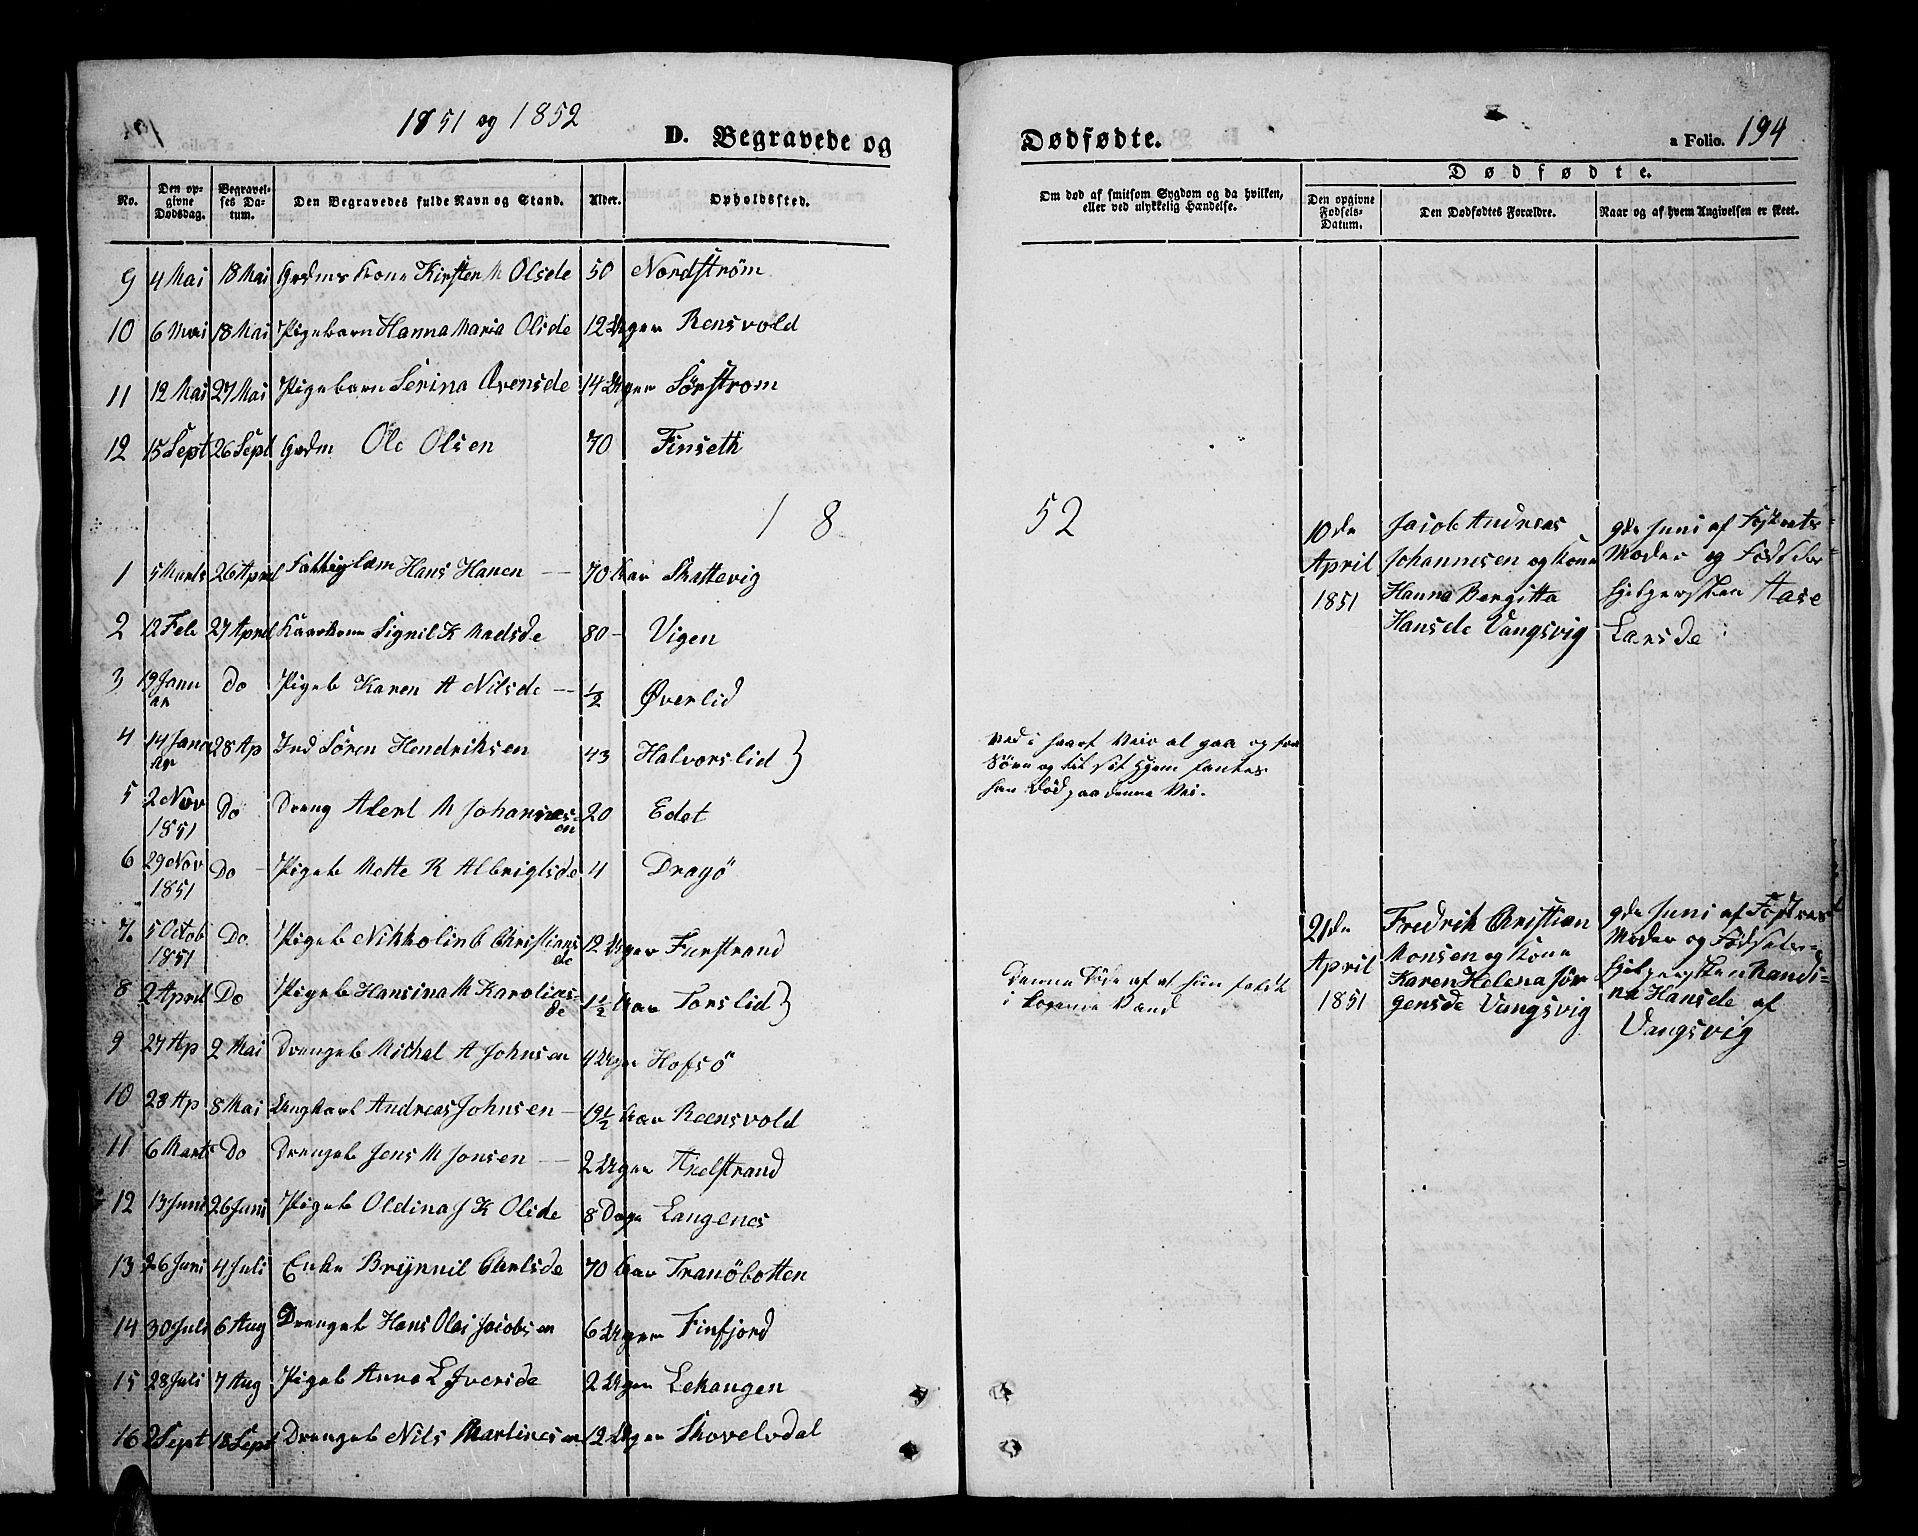 1851 og 1852
D. Begravede og
No.
Den opgivne Dødsdag.
Begravelses Datum.
Den Begravedes fulde Navn og Stand.
Alder.
Opholdssted.
9 4 Mai 18 Mai Grdms Kone Kirsten M Olsde 50 Nordstrøm
10 6 Mai 18 Mai Pigebarn Hanna Maria Olsde 12 Uger Rensvold
11 12 Mai 27 Mai Pigebarn Serina Arensde 14 Uger Sørstrom
12 15 Sept 26 Sept Grdm Ole Olsen 70 Finseth
18
1 5 Marts 26 April Fattiglem Hans Hanen 70 Aar Skattevig
2 12 Feb 27 April Kaarkone Signil K Madsde 80 Vigen
3 19 Januar Do Pigeb Karen A Nilsde 1/2 Øverlid
4 14 Januar 28 Ap Ind Søren Hendriksen 43 Halvorslid }
5 2 Nov 1851 Do Dreng Albert M Johannessen 20 Edet
6 29 Nov 1851 Do Pigeb Mette K Albrigtsde 4 Dragö
7. 5 Octob 1851 Do. Pigeb Nikkoline Christiansde 12 Uger Furstrand
8 2 April Do Pigeb Hansina M Karoliusde 1 1/2 Aar Torslid }
9 27 Ap 2 Mai Drengeb Michal A Johnsen 4 Uger Hofsö
10 28 Ap 8 Mai Ungkarl Andreas Johnsen 19 1/2 Aar Reensvold
11 6 Marts Do Drengeb Jens M Jonsen 2 Uger Axelstrand
12 13 Juni 26 Juni Pigeb Oldina J K Olsde 8 Dage Langenes
13 26 Juni 4 Juli Enke Brynnil Carlsde 70 Aar Tranöbotten
14 30 Juli 6 Aug Drengeb Hans Olai Jacobsen 6 Uger Finfjord
15 28 Juli 7 Aug Pigeb Anna L Iversde 2 Uger Lekangen
16 2 Sept 18 Sept Drengeb Nils Martinesen 12 Uger Skovelvdal
Dødfødte.
a Folio. 194
Om død af smitsom Sygdom og da hvilken,
eller ved ulykkelig Hændelse.
Dødfødte.
Den opgivne Fødsels-Datum.
Den Dødfødtes Forældre.
Naar og af hvem Angivelsen er skeet.
52
10de April 1851
Jacob Andreas
Johannesen og Kone
Hanna Bergitta
Hansde Vangsvig
9de Juni af Fostrets
Moder og Födsels-
hjelpersken Aase
Larsde
Ved i haart Veir at gaa og
Söen og til sit Hjem fantes
han död paa denne Vei.
21de April 1851
Fredrik Christian
Monsen og Kone
Karen Helena Jör
gensde Vangsvig
9de Juni af Fostrets
Moder og Födsels-
hjelpersken Randi-
na Hansde af
Vangsvig
Denne Döde af at hun faldt
i kogende Vand